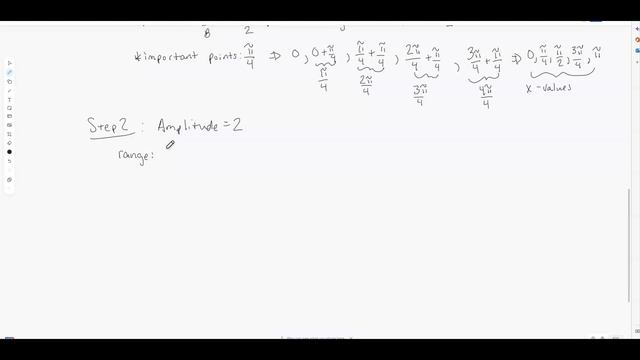 8 2
*important points: π/4 ⇒ 0, 0+π/4, π/4+π/4, 2π/4+π/4, 3π/4+π/4 ⇒ 0, π/4, π/2, 3π/4, π
π/4 2π/4 3π/4 4π/4 x-values
Step 2 : Amplitude = 2
range: